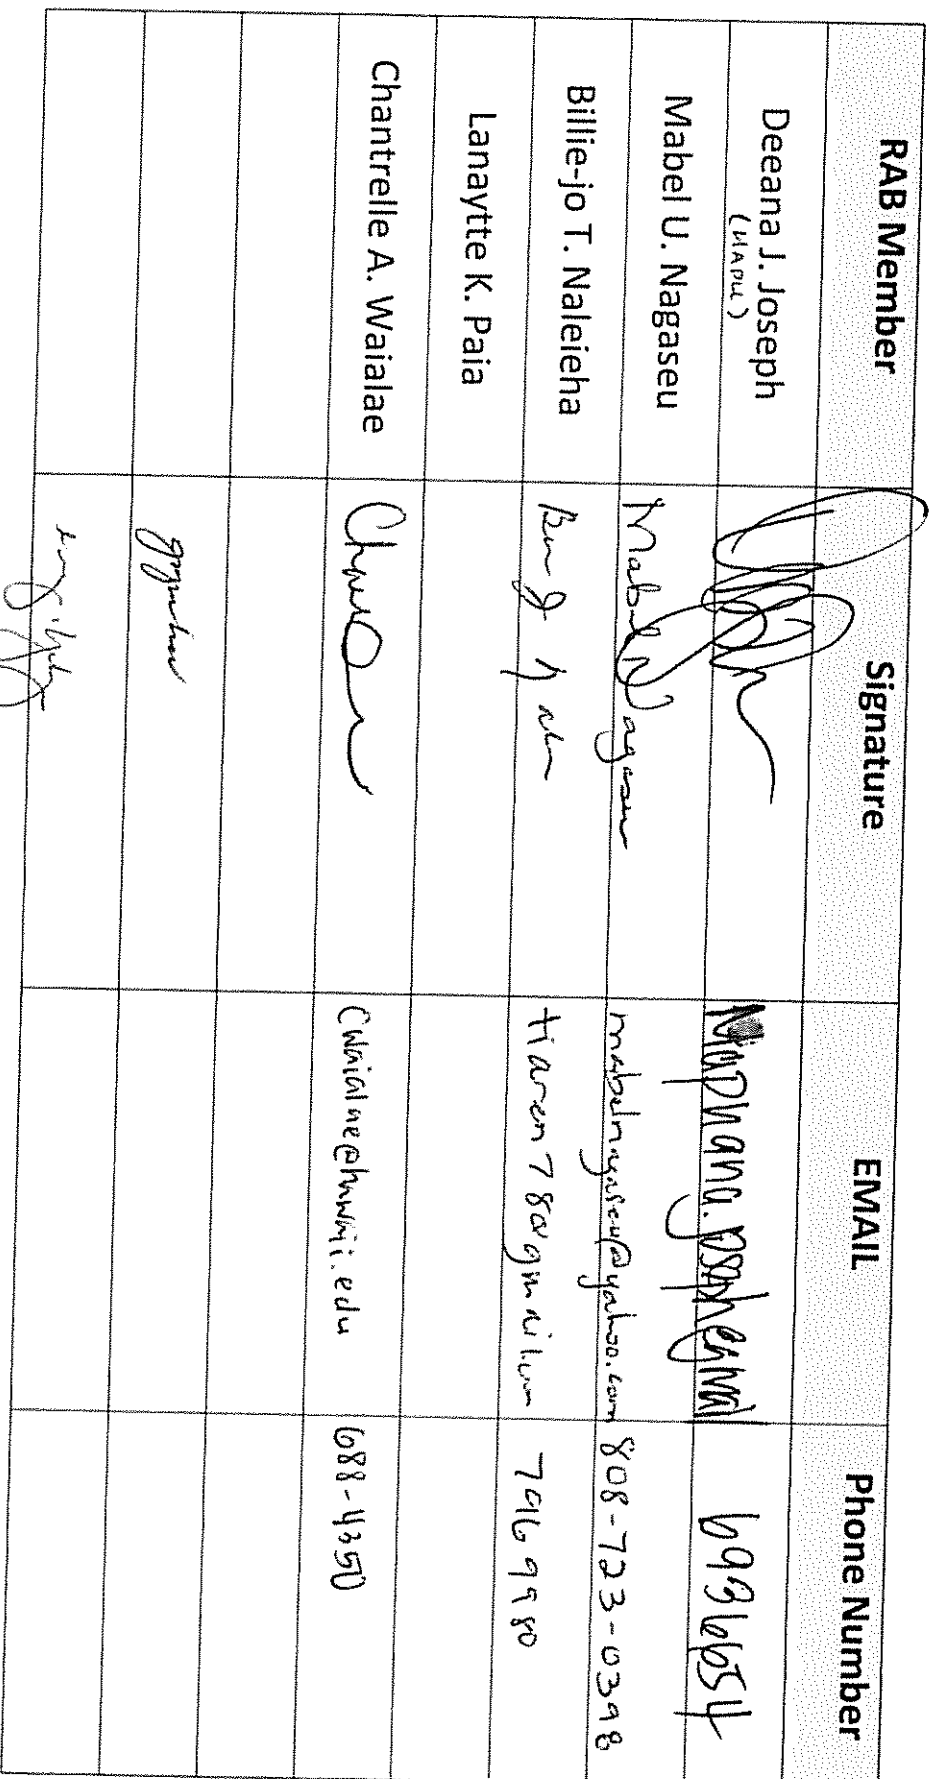 RAB Member Signature EMAIL Phone Number
Deeana J. Joseph 6936654
(HAPU)
Mabel U. Nagaseu Mabel Nagaseu mabelnagaseu@yahoo.com 808-723-0398
Billie-jo T. Naleieha 796 9980
Lanaytte K. Paia
Chantrelle A. Waialae cwaialae@hawaii.edu 688-4350